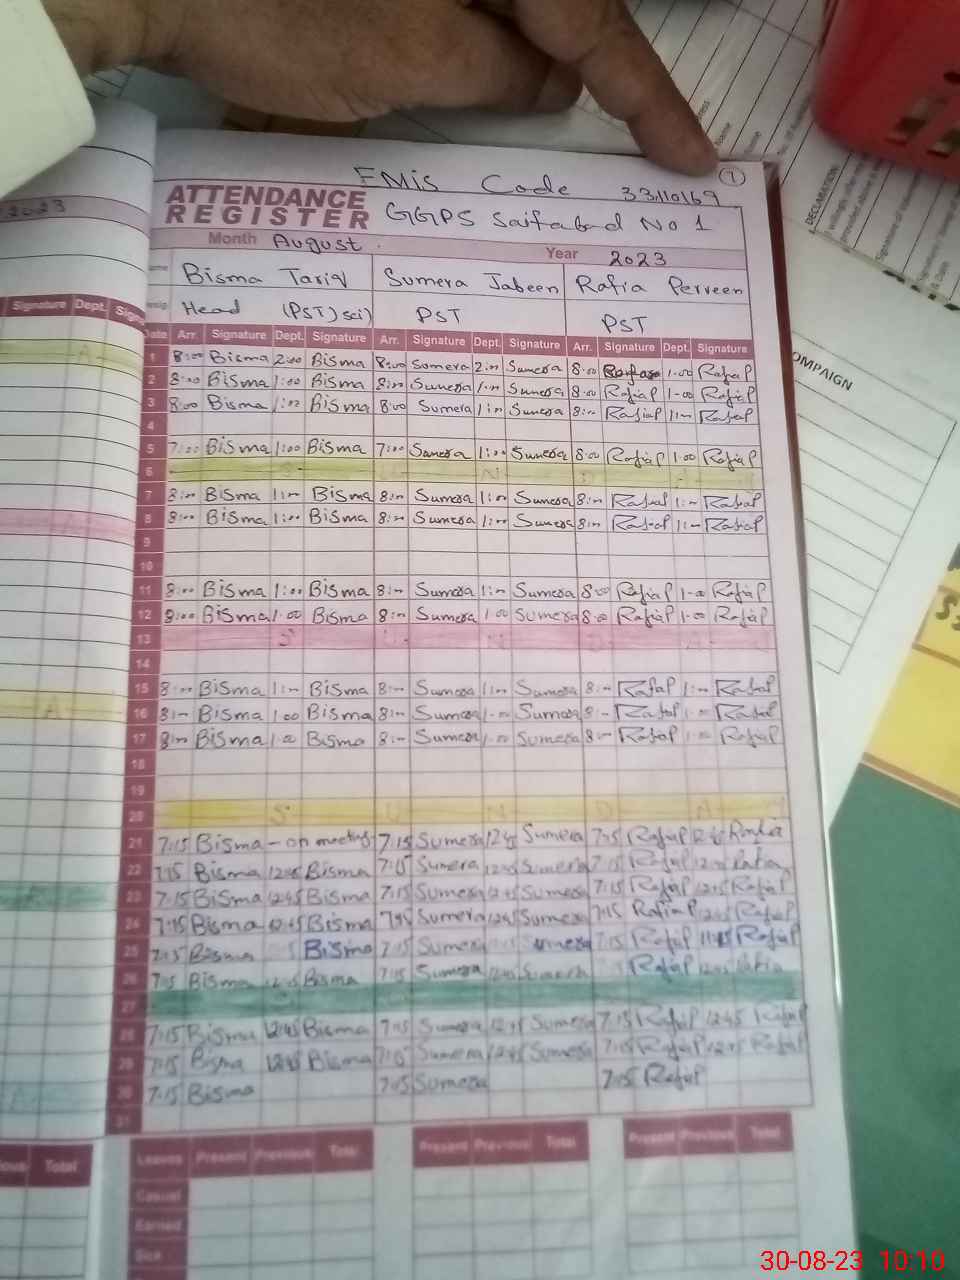 FMis Code 33110169
1
ATTENDANCE
REGISTER GGPS Saifabad No 1
2023
Month August Year 2023
Bisma Tariq Sumera Jabeen Rafia Perveen
Head (PST) sci) PST PST
Signature Dept. Date Arr. Signature Dept. Signature Arr. Signature Dept. Signature Arr. Signature Dept. Signature
1 8:00 Bisma 2:00 Bisma 8:00 Somera 2:00 Sumera 8:00 1:00 RafiaP
2 8:00 Bisma 1:00 Bisma 8:00 Sumera 1:00 Sumera 8:00 RafiaP 1:00 RafiaP
3 8:00 Bisma 1:00 Bisma 8:00 Sumera 1:00 Sumera 8:00 RafiaP 1:00 RafiaP
4
5 7:00 Bisma 1:00 Bisma 7:00 Sumera 1:00 Sumera 8:00 RafiaP 1:00 RafiaP
6 S U N D A
7 8:00 Bisma 1:00 Bisma 8:00 Sumera 1:00 Sumera 8:00 RafiaP 1:00 RafiaP
8 8:00 Bisma 1:00 Bisma 8:00 Sumera 1:00 Sumera 8:00 RafiaP 1:00 RafiaP
9
10
11 8:00 Bisma 1:00 Bisma 8:00 Sumera 1:00 Sumera 8:00 RafiaP 1:00 RafiaP
12 8:00 Bisma 1:00 Bisma 8:00 Sumera 1:00 Sumera 8:00 RafiaP 1:00 RafiaP
13 S U N D A
14
15 8:00 Bisma 1:00 Bisma 8:00 Sumera 1:00 Sumera 8:00 RafiaP 1:00 RafiaP
16 8:00 Bisma 1:00 Bisma 8:00 Sumera 1:00 Sumera 8:00 RafiaP 1:00 RafiaP
17 8:00 Bisma 1:00 Bisma 8:00 Sumera 1:00 Sumera 8:00 RafiaP 1:00 RafiaP
18
19
20 S U N D A Y
21 7:15 Bisma - on meeting 7:15 Sumera 12:45 Sumera 7:15 RafiaP 12:45 Rafia
22 7:15 Bisma 12:45 Bisma 7:15 Sumera 12:45 Sumera 7:15 RafiaP Rafia
23 7:15 Bisma 12:45 Bisma 7:15 Sumera 12:45 Sumera 7:15 RafiaP 12:45 RafiaP
24 7:15 Bisma 12:45 Bisma 7:15 Sumera 12:45 Sumera 7:15 RafiaP 12:45 RafiaP
25 7:15 Bisma Bisma 7:15 Sumera Sumera 7:15 RafiaP RafiaP
26 7:15 Bisma 12:45 Bisma 7:15 Sumera 12:45 Sumera RafiaP 12:45 Rafia
27
28 7:15 Bisma 12:45 Bisma 7:15 Sumera 12:45 Sumera 7:15 RafiaP 12:45 RafiaP
29 7:15 Bisma 12:45 Bisma 7:15 Sumera 12:45 Sumera 7:15 RafiaP 12:45 RafiaP
30 7:15 Bisma 7:15 Sumera 7:15 RafiaP
31
Total Leaves Present Previous Total Present Previous Total Present Previous Total
Casual
Earned
Sick
DECLARATION
OMPAIGN
30-08-23 10:10